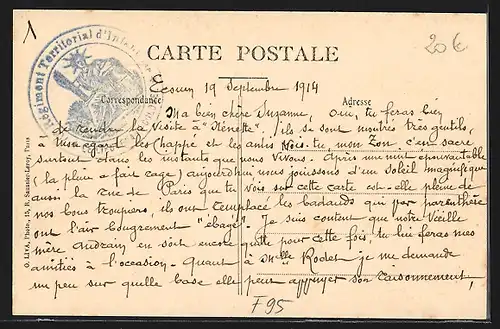 1
20€
Régiment Territorial d'Infanterie
CARTE POSTALE
Ecouen 19 Septembre 1914
Correspondance
Adresse
Ma bien chère Suzanne, Oui, tu feras bien
de rendre la visite à "Nénette". ils se sont montrés très gentils,
à mon égard les chappe et les antis Vois-tu, mon Zon, c'en sacre
surtout dans les instants que nous Vivons. Après une nuit épouvantable
(la pluie a fait rage) aujourd'hui nous jouissons d'un soleil magnifique
aussi la rue de Paris que tu vois sur cette carte est-elle pleine de
nos bons troupiers, ils ont remplacé les badauds qui par parenthère
ont l'air bougrement "ébayé". Je suis content que notre Vieille
mère Andrain en soit encore quitte pour cette fois, tu lui feras mes
amitiés à l'occasion. Quant à Melle Rodet je me demande
un peu sur quelle base elle peut appuyer son raisonnement,
F95